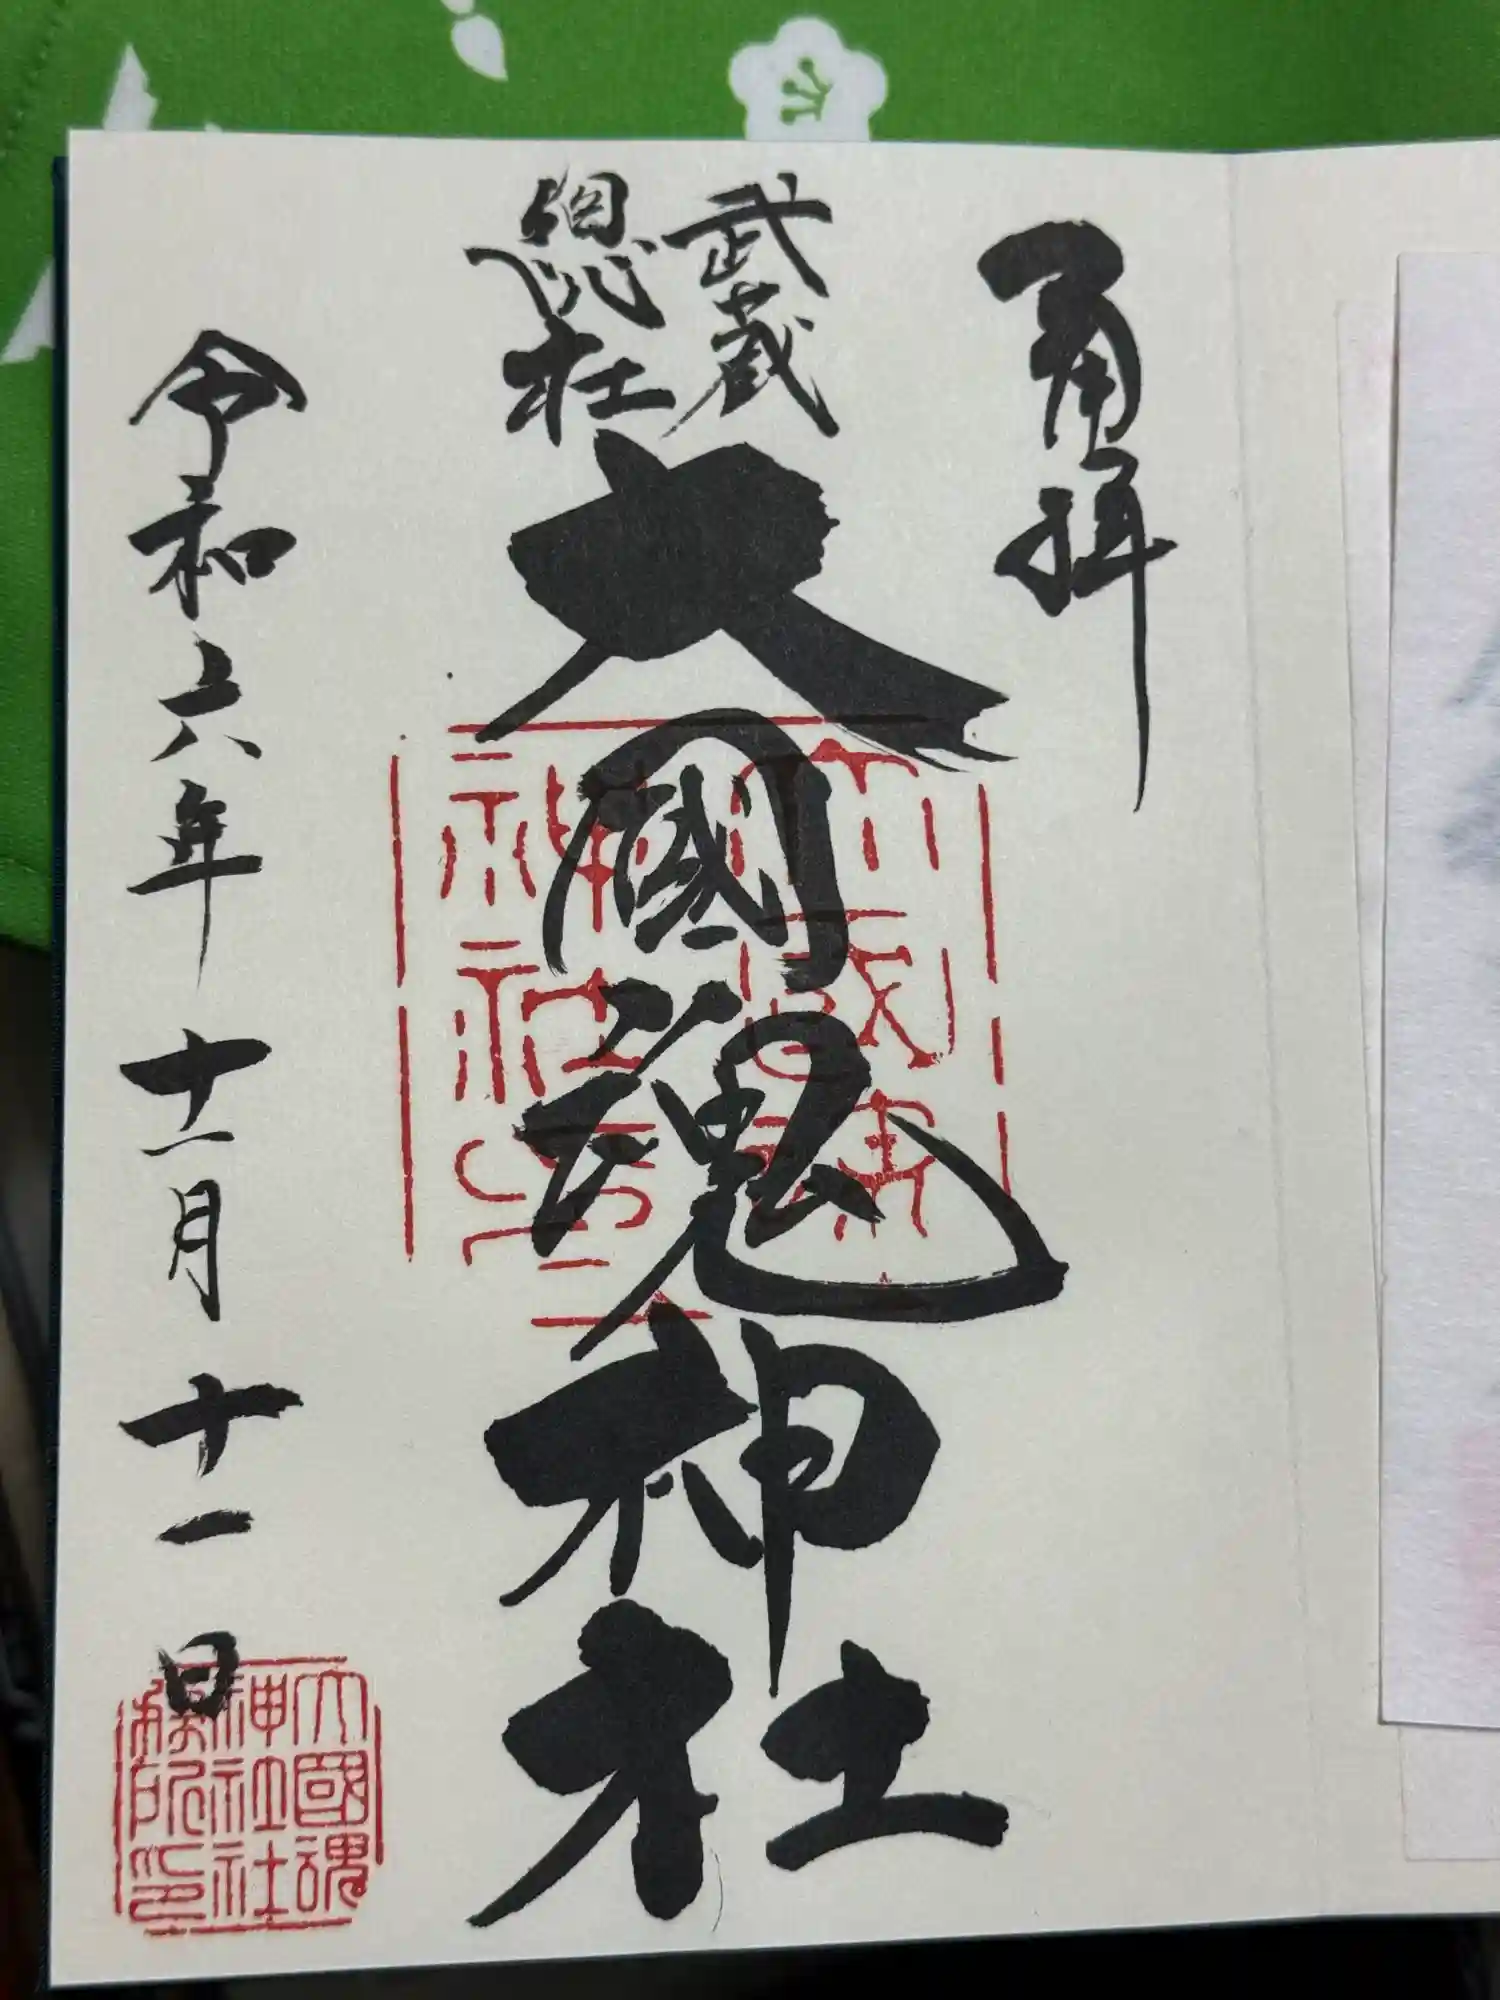 奉拝
武蔵
總社
大國魂神社
令和六年 十一月 十一日
大國魂
神社社
務所印